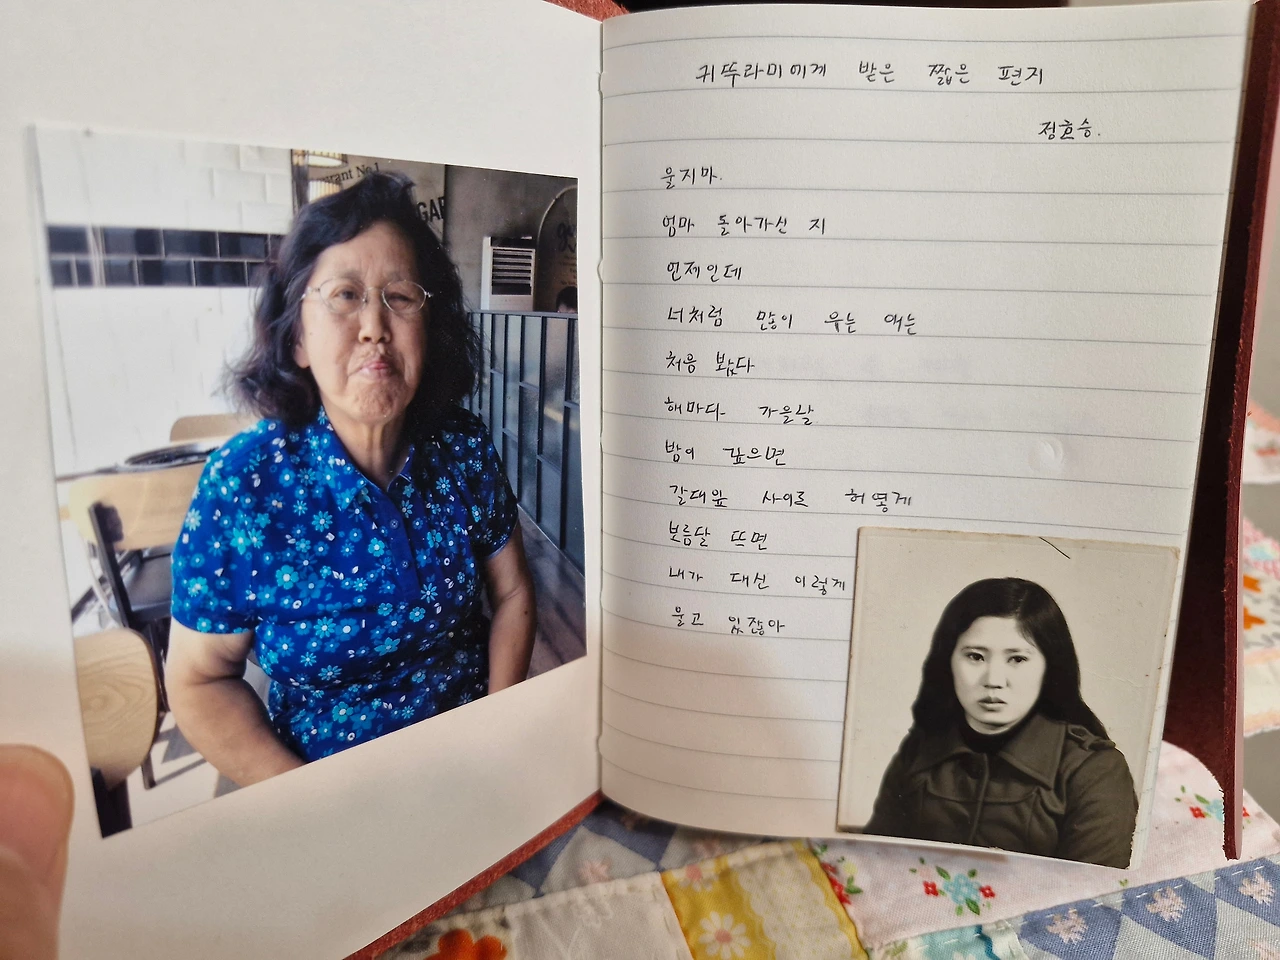 urant No.1
GAR
귀뚜라미에게 받은 짧은 편지
정호승.
울지마.
엄마 돌아가신 지
언제인데
너처럼 많이 우는 애는
처음 봤다
해마다 가을날
밤이 깊으면
갈대잎 사이로 허옇게
보름달 뜨면
내가 대신 이렇게
울고 있잖아